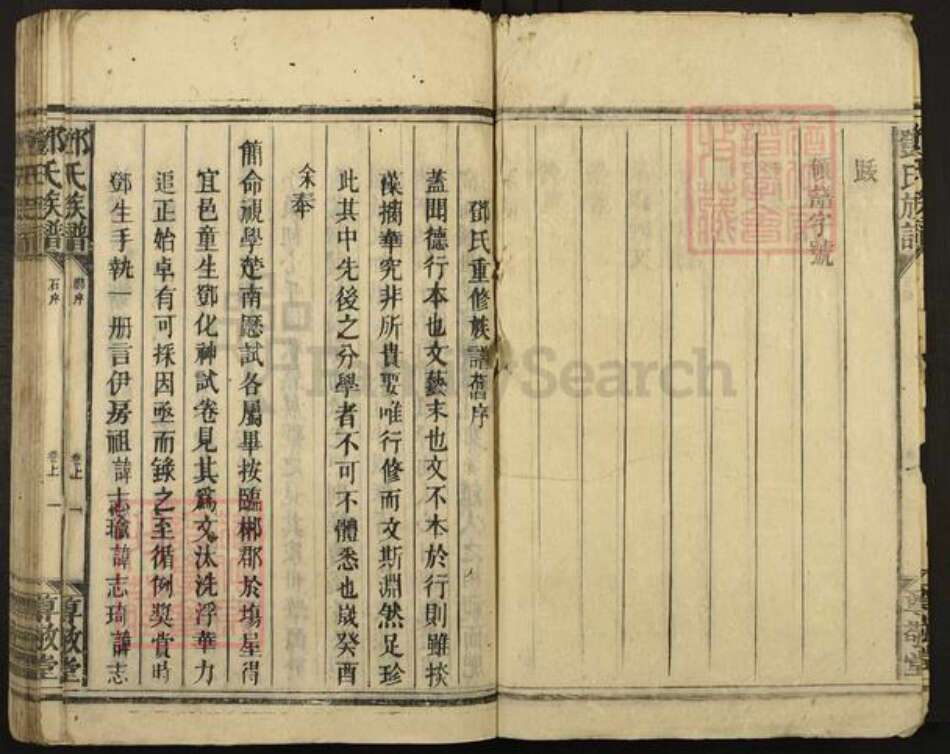 鄧氏族譜
跋
領譜字號
鄧氏重修族譜舊序
蓋聞德行本也文藝末也文不本於行則雖掞
藻摛華究非所貴要唯行修而文斯淵然足珍
此其中先後之分學者不可不體悉也歲癸酉
余奉
簡命視學楚南歷試各屬畢按臨郴郡於塲星得
宜邑童生鄧化神試卷見其爲文汰洗浮華力
追正始卓有可採因亟而錄之至循例奬賞時
鄧生手執一册言伊房祖諱志瑜諱志琦諱志
鄧氏族譜
卷上
一
尊敬堂
石序
卷上
一
尊敬堂
FamilySearch